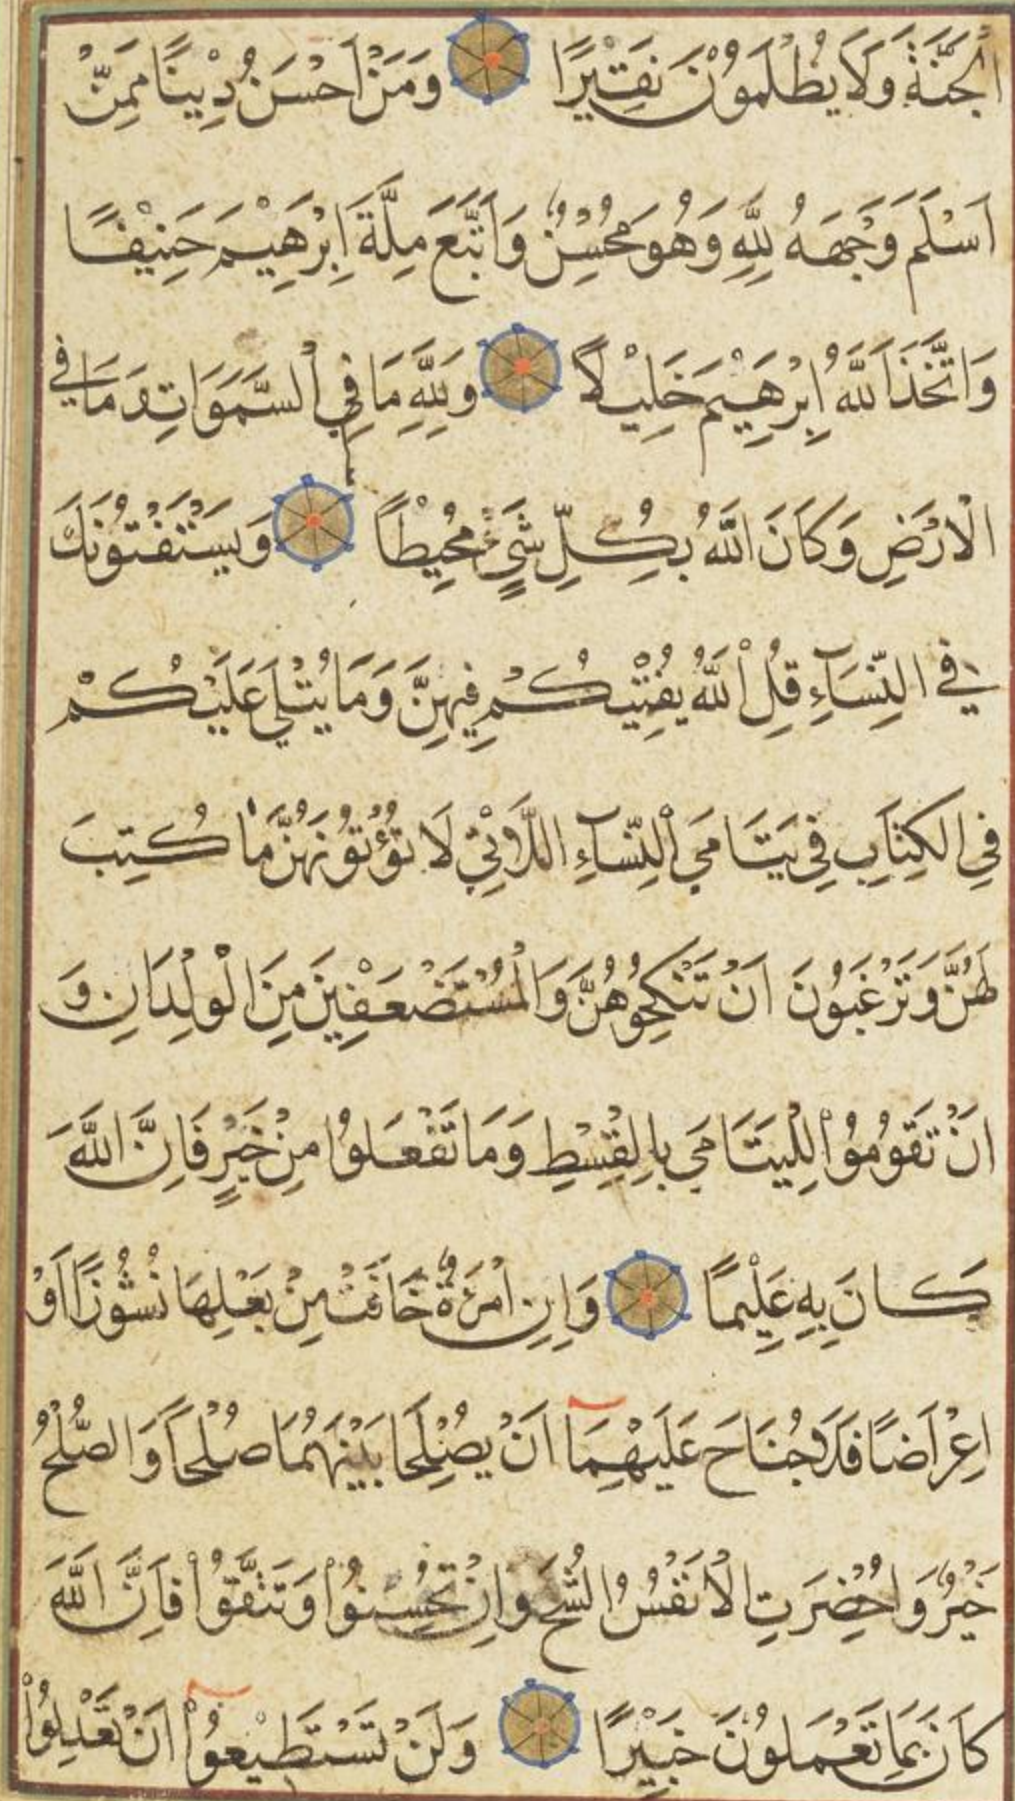 الْجَنَّةَ وَلَا يُظْلَمُوْنَ نَقِيْرًا وَمَنْ اَحْسَنُ دِيْنًا مِمَّنْ
اَسْلَمَ وَجْهَهُ لِلّٰهِ وَهُوَ مُحْسِنٌ وَاتَّبَعَ مِلَّةَ اِبْرٰهِيْمَ حَنِيْفًا
وَاتَّخَذَ اللّٰهُ اِبْرٰهِيْمَ خَلِيْلًا وَلِلّٰهِ مَا فِي السَّمَوَاتِ وَمَا فِي
الْاَرْضِ وَكَانَ اللّٰهُ بِكُلِّ شَيْءٍ مُحِيْطًا وَيَسْتَفْتُوْنَكَ
فِي النِّسَآءِ قُلِ اللّٰهُ يُفْتِيْكُمْ فِيْهِنَّ وَمَا يُتْلٰى عَلَيْكُمْ
فِي الْكِتَابِ فِي يَتَامَى النِّسَآءِ اللَّاتِيْ لَا تُؤْتُوْنَهُنَّ مَا كُتِبَ
لَهُنَّ وَتَرْغَبُوْنَ اَنْ تَنْكِحُوْهُنَّ وَالْمُسْتَضْعَفِيْنَ مِنَ الْوِلْدَانِ وَ
اَنْ تَقُوْمُوْا لِلْيَتَامَى بِالْقِسْطِ وَمَا تَفْعَلُوْا مِنْ خَيْرٍ فَاِنَّ اللّٰهَ
كَانَ بِهِ عَلِيْمًا وَاِنِ امْرَةٌ خَافَتْ مِنْ بَعْلِهَا نُشُوْزًا اَوْ
اِعْرَاضًا فَلَا جُنَاحَ عَلَيْهِمَآ اَنْ يُصْلِحَا بَيْنَهُمَا صُلْحًا وَالصُّلْحُ
خَيْرٌ وَاُحْضِرَتِ الْاَنْفُسُ الشُّحَّ وَاِنْ تُحْسِنُوْا وَتَتَّقُوْا فَاِنَّ اللّٰهَ
كَانَ بِمَا تَعْمَلُوْنَ خَبِيْرًا وَلَنْ تَسْتَطِيْعُوْآ اَنْ تَعْدِلُوْا